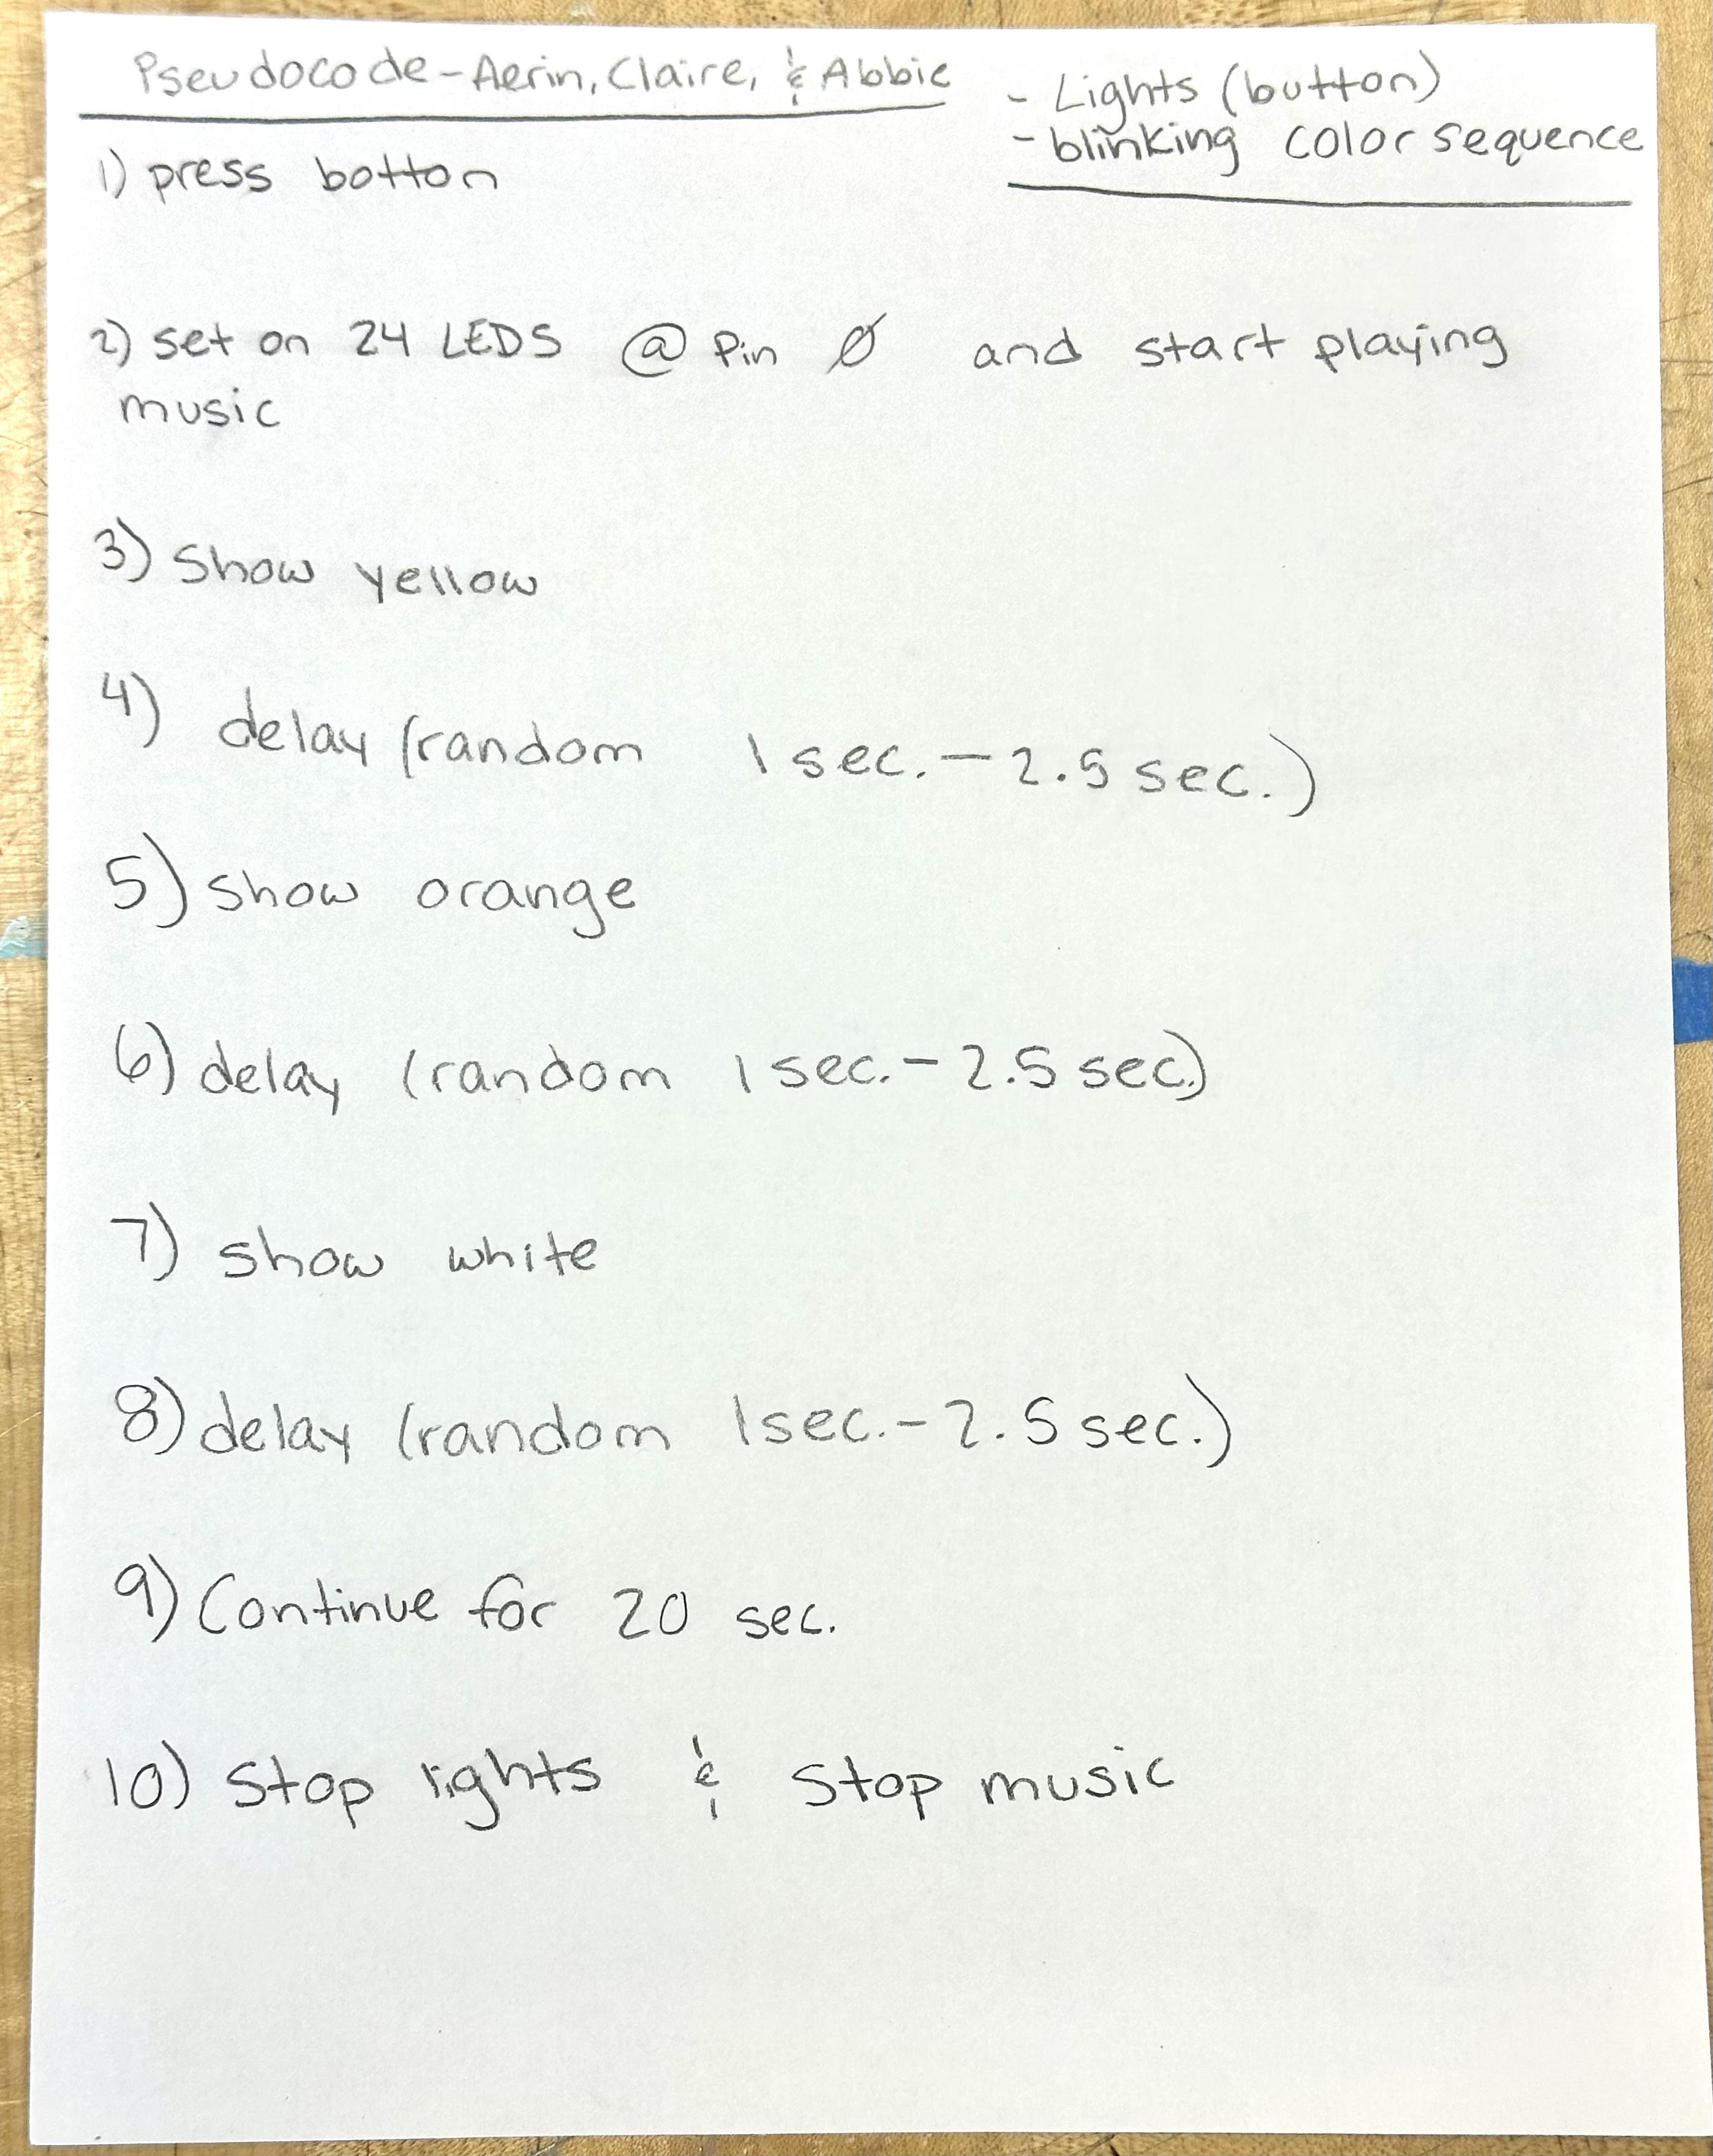 Pseudocode - Aerin, Claire, & Abbie
- Lights (button)
- blinking color sequence
1) press botton
2) set on 24 LEDS @ Pin Ø and start playing
music
3) Show yellow
4) delay (random 1 sec. - 2.5 sec.)
5) show orange
6) delay (random 1 sec. - 2.5 sec.)
7) show white
8) delay (random 1 sec. - 2.5 sec.)
9) Continue for 20 sec.
10) Stop lights & Stop music